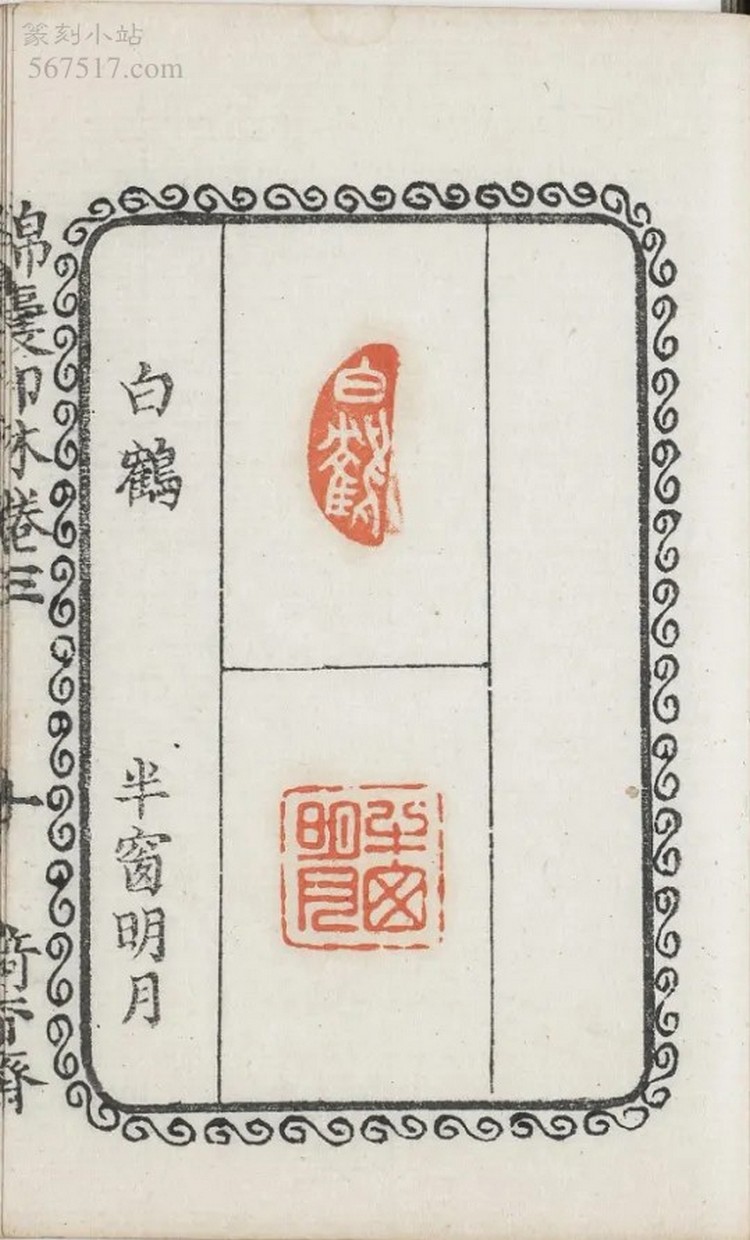 篆刻小站
567517.com
白鶴
半窗明月
白鶴
半窗
明月
錦囊印林卷三
十